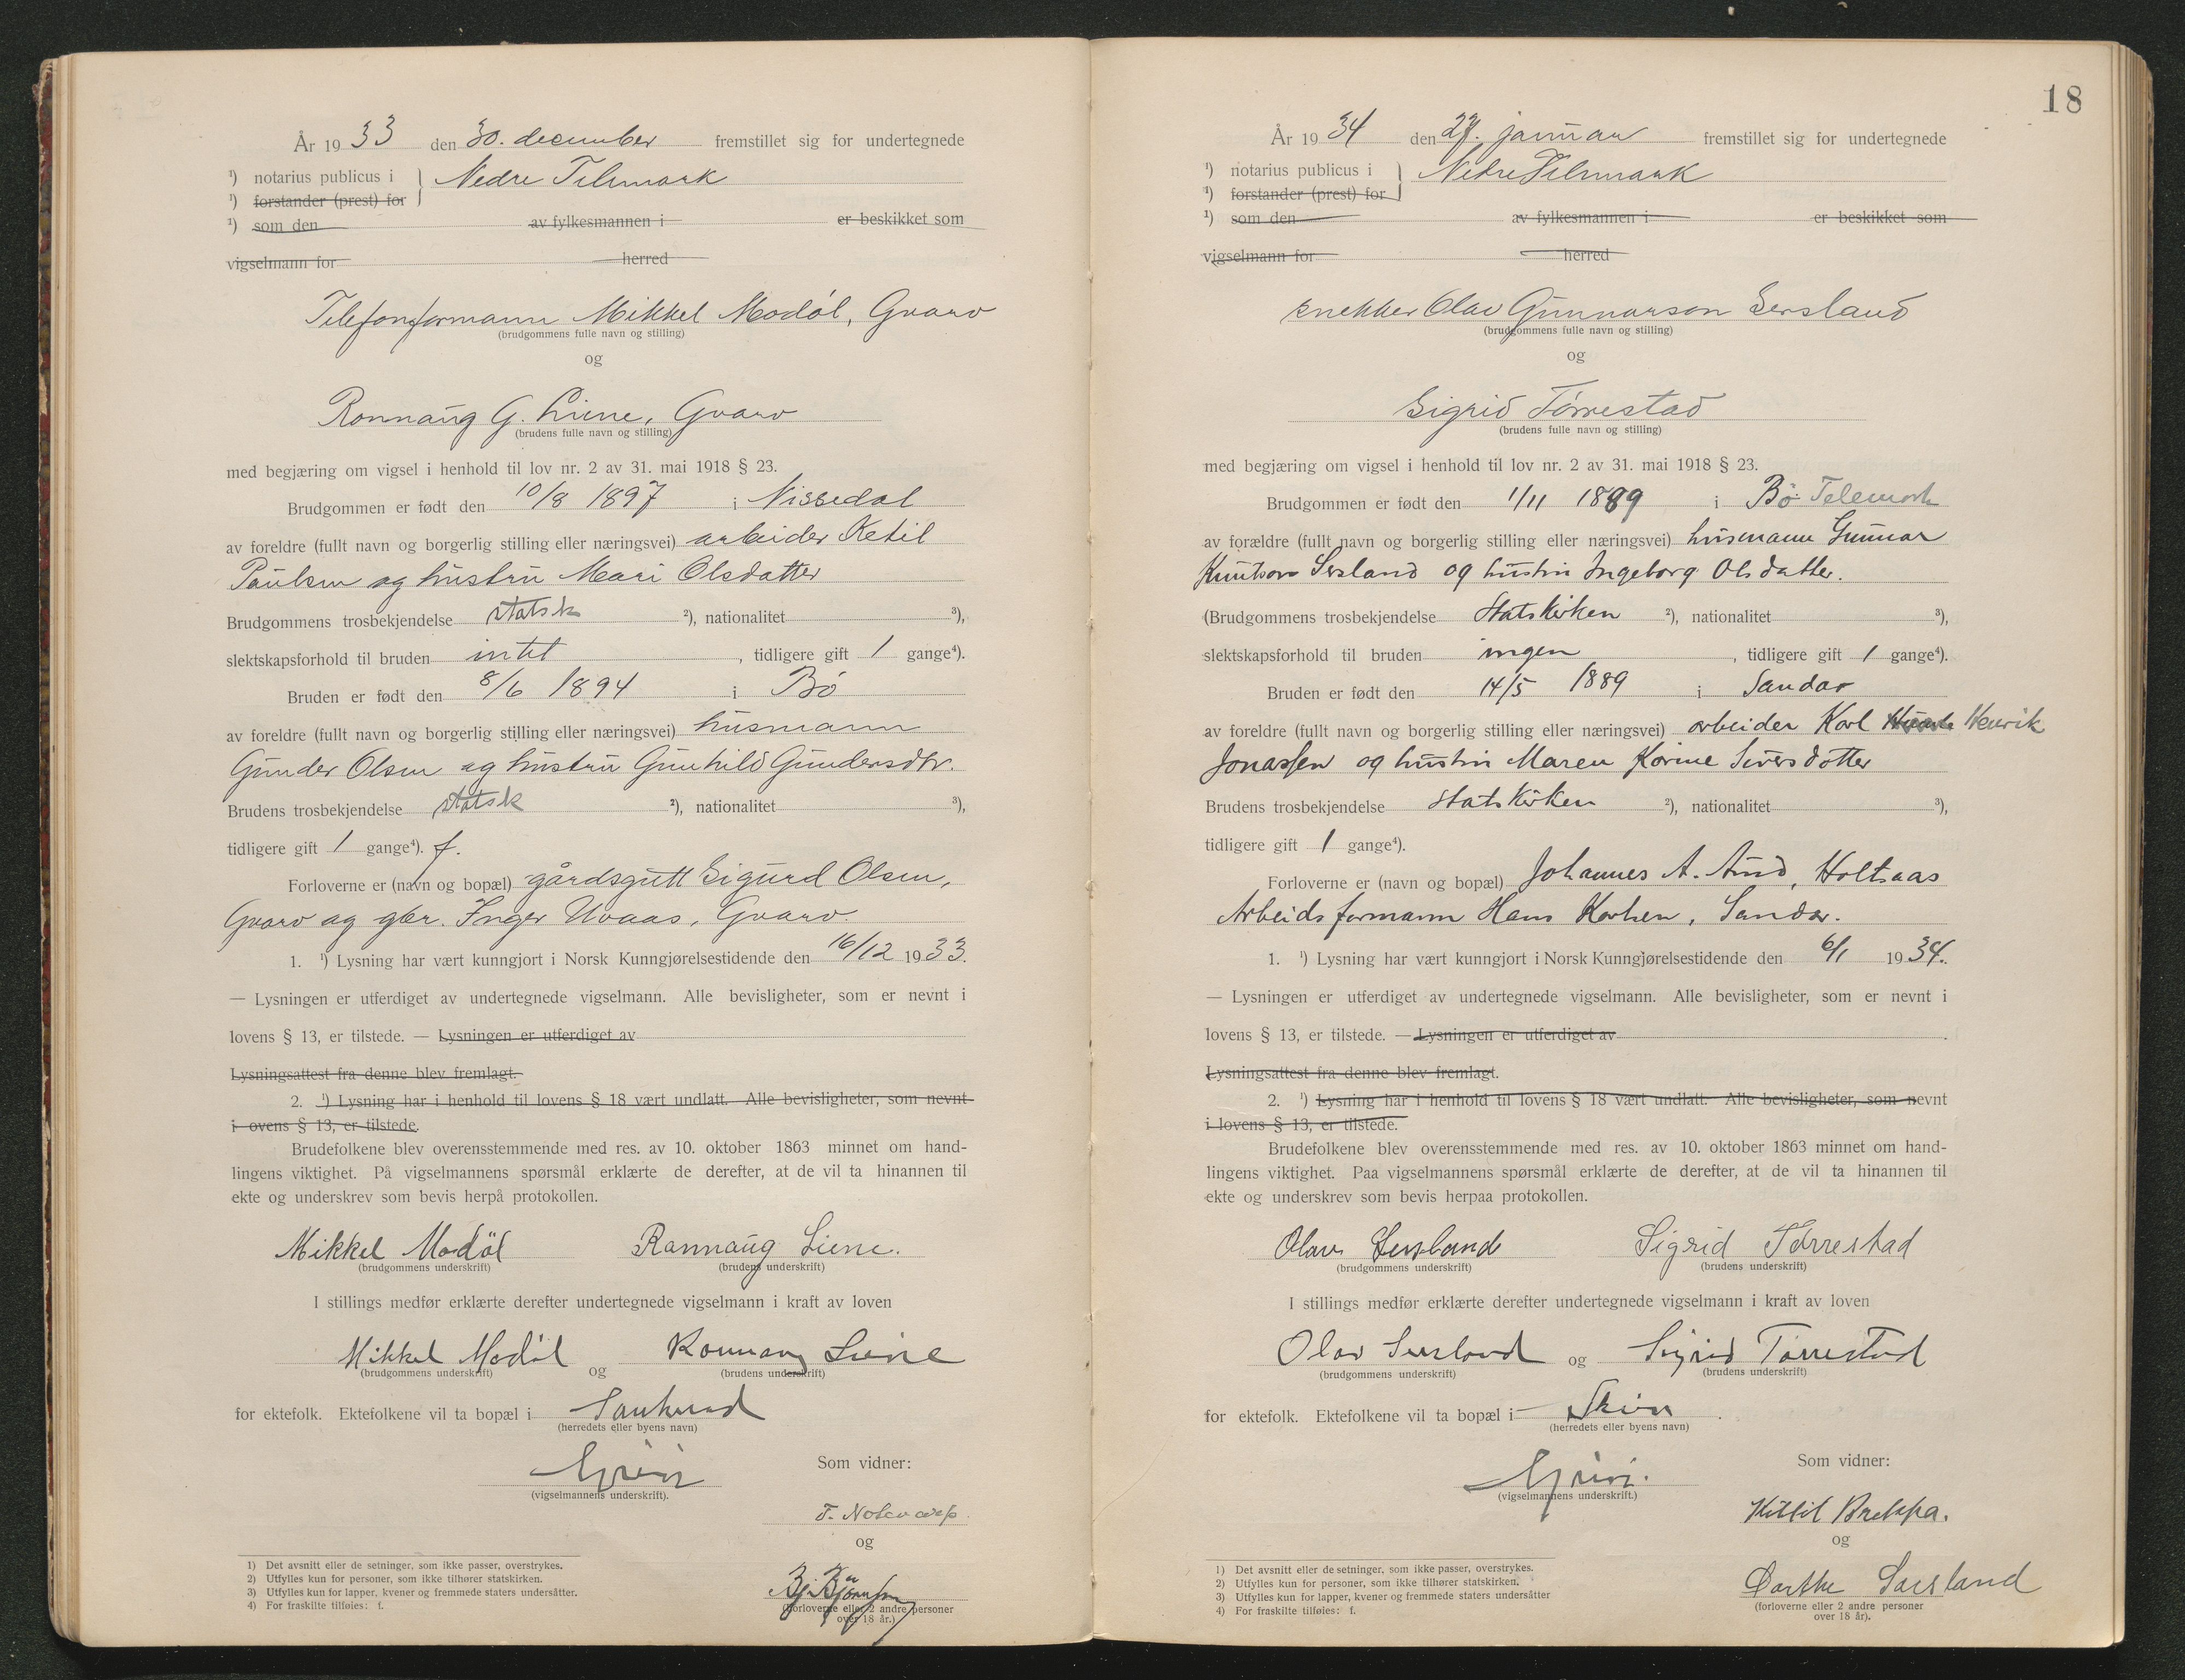 År 1933 den 30. december fremstillet sig for undertegnede
¹) notarius publicus i } Nedre Telemark
¹) forstander (prest) for
¹) som den av fylkesmannen i er beskikket som
vigselmann for herred
Telefonformann Mikkel Modøl, Gvarv
(brudgommens fulle navn og stilling)
og
Ronnaug G. Liene, Gvarv
(brudens fulle navn og stilling)
med begjæring om vigsel i henhold til lov nr. 2 av 31. mai 1918 § 23.
Brudgommen er født den 10/8 1897 i Nissedal
av foreldre (fullt navn og borgerlig stilling eller næringsvei) arbeider Ketil
Paulsen og hustru Mari Olsdatter
Brudgommens trosbekjendelse statsk ²), nationalitet ³),
slektskapsforhold til bruden intet, tidligere gift 1 gange⁴).
Bruden er født den 8/6 1894 i Bø
av foreldre (fullt navn og borgerlig stilling eller næringsvei) husmann
Gunder Olsen og hustru Gunhild Gundersdtr.
Brudens trosbekjendelse statsk ²), nationalitet ³),
tidligere gift 1 gange⁴). f.
Forloverne er (navn og bopæl) gårdsgutt Sigurd Olsen,
Gvarv og gbr. Inger Uvaas, Gvarv.
1. ¹) Lysning har vært kunngjort i Norsk Kunngjørelsestidende den 16/12 1933.
— Lysningen er utferdiget av undertegnede vigselmann. Alle bevisligheter, som er nevnt i
lovens § 13, er tilstede. — Lysningen er utferdiget av
Lysningsattest fra denne blev fremlagt.
2. ¹) Lysning har i henhold til lovens § 18 vært undlatt. Alle bevisligheter, som nevnt
i ovens § 13, er tilstede.
Brudefolkene blev overensstemmende med res. av 10. oktober 1863 minnet om hand-
lingens viktighet. På vigselmannens spørsmål erklærte de derefter, at de vil ta hinannen til
ekte og underskrev som bevis herpå protokollen.
Mikkel Modøl Rannaug Liene.
(brudgommens underskrift) (brudens underskrift)
I stillings medfør erklærte derefter undertegnede vigselmann i kraft av loven
Mikkel Modøl og Ronnaug Liene
(brudgommens underskrift) (brudens underskrift)
for ektefolk. Ektefolkene vil ta bopæl i Sauherad
(herredets eller byens navn)
Som vidner:
(vigselmannens underskrift).
og
(forloverne eller 2 andre personer
over 18 år.)
1) Det avsnitt eller de setninger, som ikke passer, overstrykes.
2) Utfylles kun for personer, som ikke tilhører statskirken.
3) Utfylles kun for lapper, kvener og fremmede staters undersåtter.
4) For fraskilte tilføies: f.
18
År 1934 den 27. januar fremstillet sig for undertegnede
¹) notarius publicus i } Nedre Telemark
¹) forstander (prest) for
¹) som den av fylkesmannen i er beskikket som
vigselmann for herred
snekker Olav Gunnarson Sersland
(brudgommens fulle navn og stilling)
og
Sigrid Tørrestad
(brudens fulle navn og stilling)
med begjæring om vigsel i henhold til lov nr. 2 av 31. mai 1918 § 23.
Brudgommen er født den 1/11 1889 i Bø Telemark
av forældre (fullt navn og borgerlig stilling eller næringsvei) husmann Gunnar
Knutson Sersland og hustru Ingeborg Olsdatter.
(Brudgommens trosbekjendelse Statskirken ²), nationalitet ³),
slektskapsforhold til bruden ingen, tidligere gift 1 gange⁴).
Bruden er født den 14/5 1889 i Sandar
av foreldre (fullt navn og borgerlig stilling eller næringsvei) arbeider Karl Henrik
Jonassen og hustru Maren Karine Siversdatter
Brudens trosbekjendelse Statskirken ²), nationalitet ³),
tidligere gift 1 gange⁴).
Forloverne er (navn og bopæl) Johannes A. Aud, Holtsaas
Arbeidsformann Hans Karlsen, Sandar.
1. ¹) Lysning har vært kunngjort i Norsk Kunngjørelsestidende den 6/1 1934.
— Lysningen er utferdiget av undertegnede vigselmann. Alle bevisligheter, som er nevnt i
lovens § 13, er tilstede. — Lysningen er utferdiget av
Lysningsattest fra denne blev fremlagt.
2. ¹) Lysning har i henhold til lovens § 18 vært undlatt. Alle bevisligheter, som nevnt
i lovens § 13, er tilstede.
Brudefolkene blev overensstemmende med res. av 10. oktober 1863 minnet om hand-
lingens viktighet. Paa vigselmannens spørsmål erklærte de derefter, at de vil ta hinannen til
ekte og underskrev som bevis herpaa protokollen.
Olav Sersland Sigrid Tørrestad
(brudgommens underskrift) (brudens underskrift)
I stillings medfør erklærte derefter undertegnede vigselmann i kraft av loven
Olav Sersland og Sigrid Tørrestad
(brudgommens underskrift) (brudens underskrift)
for ektefolk. Ektefolkene vil ta bopæl i Skien.
(herredets eller byens navn)
Som vidner:
(vigselmannens underskrift.)
Kittil Brekka.
og
Dorthe Sersland
(forloverne eller 2 andre personer
over 18 år).
1) Det avsnitt eller de setninger, som ikke passer, overstrykes.
2) Utfylles kun for personer, som ikke tilhører statskirken.
3) Utfylles kun for lapper, kvener og fremmede staters undersåtter
4) For fraskilte tilføies: f.